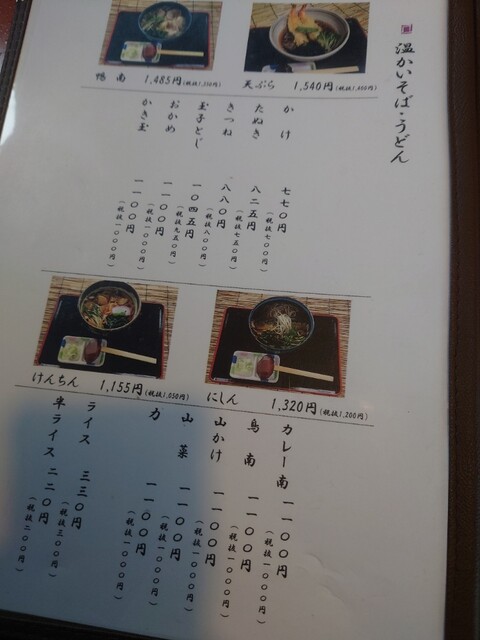 温かいそば・うどん
天ぷら 1,540円(税抜1,400円)
鴨南 1,485円(税抜1,350円)
かけ 七七〇円
(税抜七〇〇円)
たぬき 八二五円
(税抜七五〇円)
きつね 八八〇円
(税抜八〇〇円)
玉子とじ 一〇四五円
(税抜九五〇円)
おかめ 一一〇〇円
(税抜一〇〇〇円)
かき玉 一一〇〇円
(税抜一〇〇〇円)
にしん 1,320円(税抜1,200円)
けんちん 1,155円(税抜1,050円)
カレー南 一一〇〇円
(税抜一〇〇〇円)
鳥南 一一〇〇円
(税抜一〇〇〇円)
山かけ 一一〇〇円
(税抜一〇〇〇円)
山菜 一一〇〇円
(税抜一〇〇〇円)
力 一一〇〇円
(税抜一〇〇〇円)
ライス 三三〇円
(税抜三〇〇円)
半ライス 二二〇円
(税抜二〇〇円)